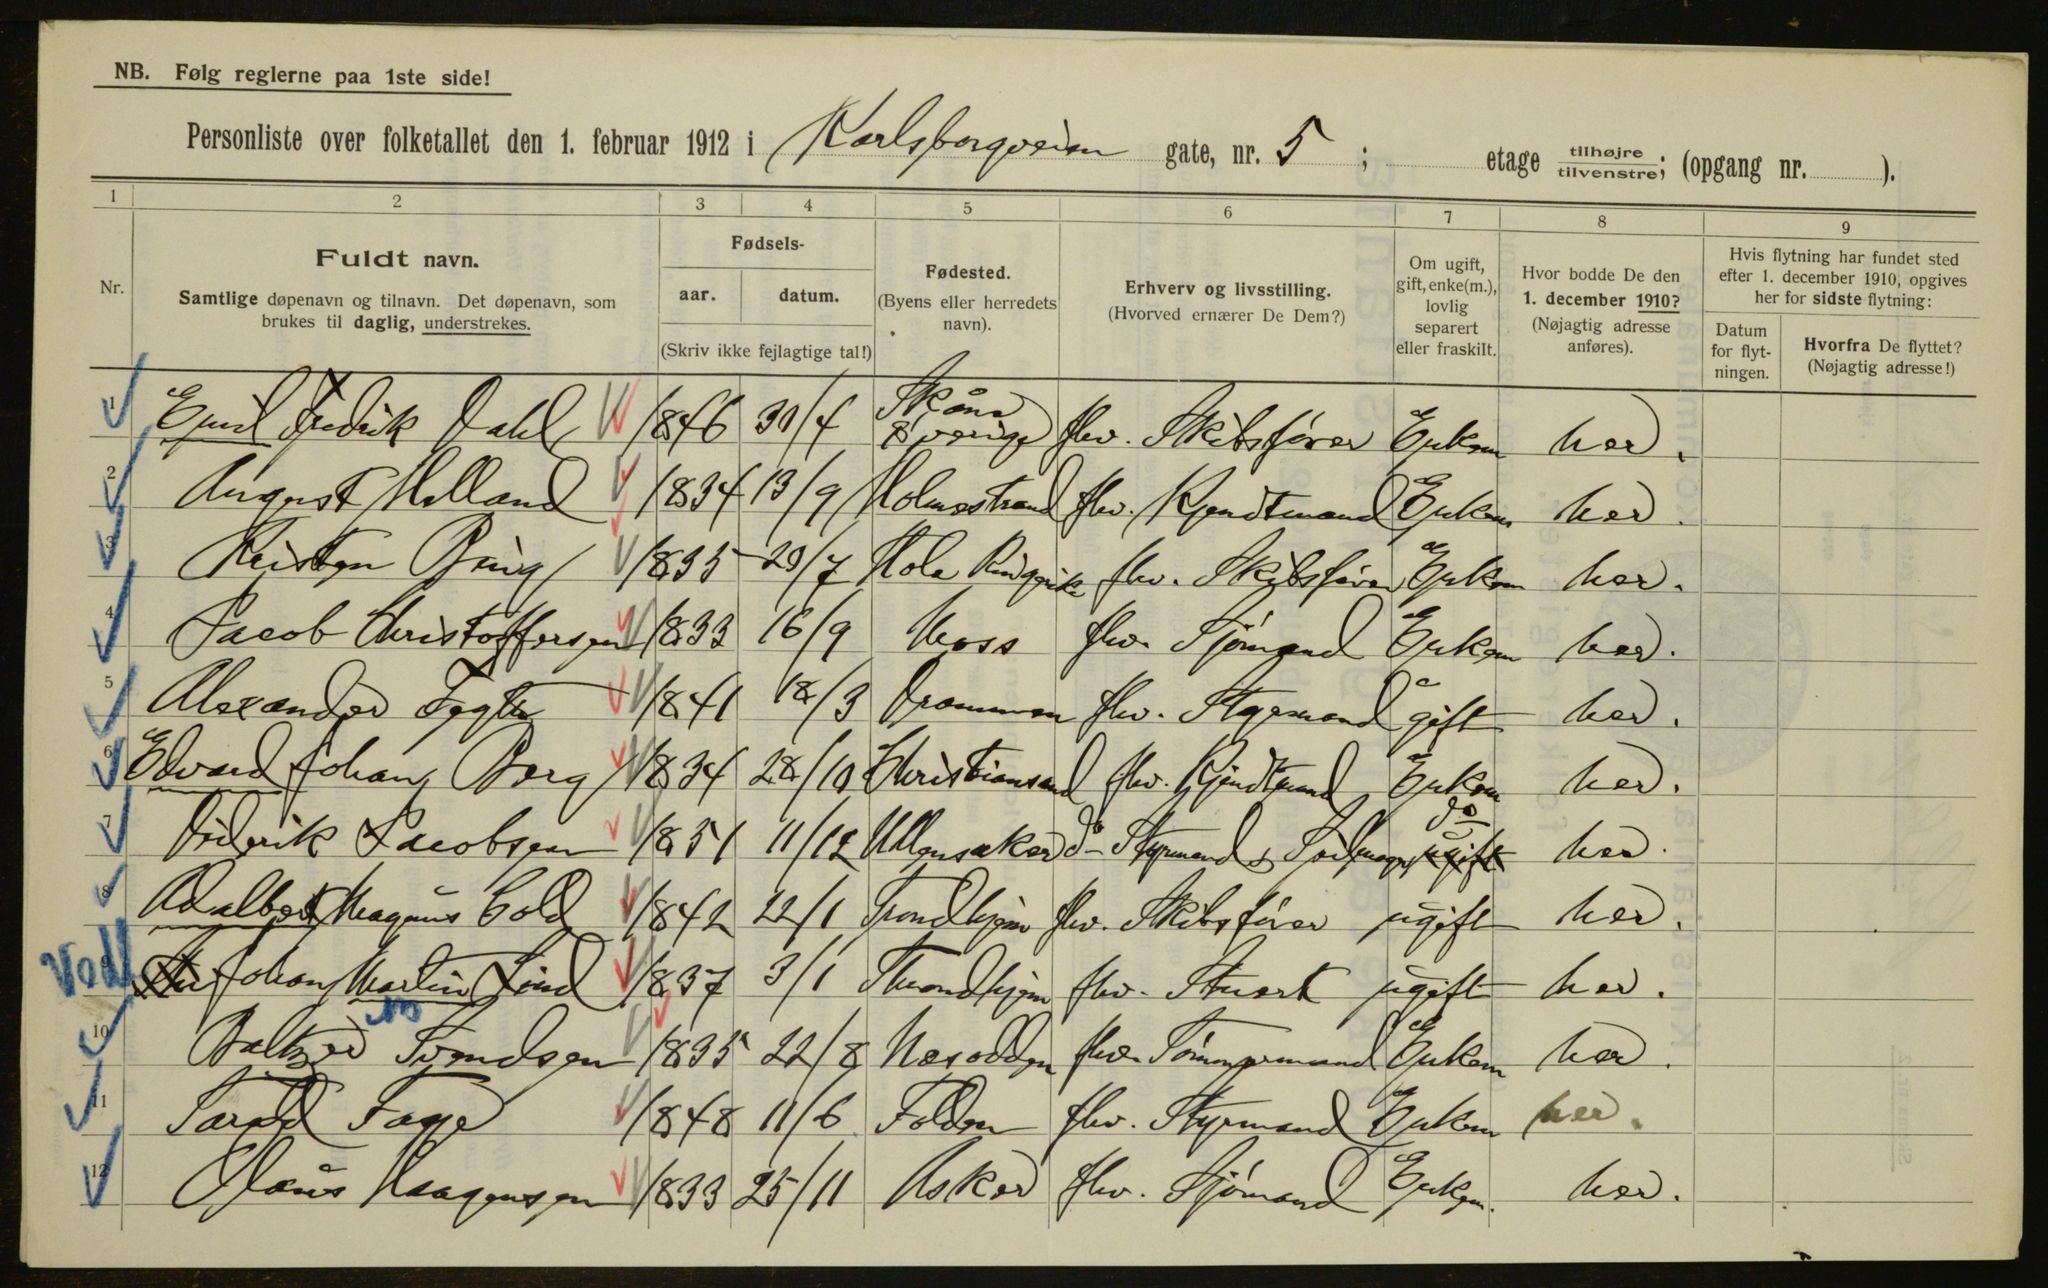 NB. Følg reglerne paa 1ste side!
Personliste over folketallet den 1. februar 1912 i Karlsborgveien gate, nr. 5 ; etage tilhøjre / tilvenstre; (opgang nr. ).
1 2 3 4 5 6 7 8 9
Nr.
Fuldt navn.
Samtlige døpenavn og tilnavn. Det døpenavn, som
brukes til daglig, understrekes.
Fødsels-
aar. datum.
(Skriv ikke fejlagtige tal!)
Fødested.
(Byens eller herredets
navn).
Erhverv og livsstilling.
(Hvorved ernærer De Dem?)
Om ugift,
gift, enke(m.),
lovlig
separert
eller fraskilt.
Hvor bodde De den
1. december 1910?
(Nøjagtig adresse
anføres).
Hvis flytning har fundet sted
efter 1. december 1910, opgives
her for sidste flytning:
Datum
for flyt-
ningen.
Hvorfra De flyttet?
(Nøjagtig adresse!)
1 Emil Fredrik Dahl 1846 30/4 Skåne Sverige fhv. Skibsfører Enkem her.
2 August Holland 1834 13/9 Holmestrand fhv. Kjendtmand Enkem her.
3 Kristen Bing 1835 20/7 Hole Ringerike fhv. Skibsfører Enkem her.
4 Jacob Christoffersen 1833 16/9 Moss fhv. Sjömand Enkem her.
5 Alexander 1841 18/3 Drammen fhv. gift her.
6 Edvard Johan Berg 1834 28/10 Christiansand fhv. Kjendtmand Enkem her.
7 Diderik Jacobsen 1851 11/12 Ullensaker do Styrmand & do ugift her.
8 Adalbert Magnus Cold 1842 22/1 Trondhjem fhv. Skibsfører ugift her.
Vedl
9 Johan Martin Lind 1837 3/1 Throndhjem fhv. Stuert ugift her.
10 Baltzer Svendsen 1835 22/8 Nesodden fhv. Tömmermand Enkem her.
11 Tarald 1848 11/6 Folden fhv. Styrmand Enkem her.
12 Claus Haagensen 1833 25/11 Asker fhv. Sjömand Enkem. her.